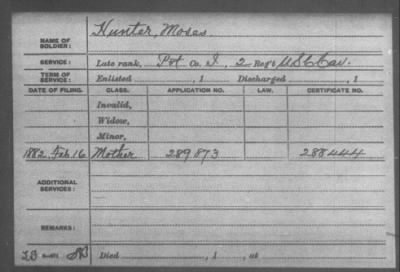 Hunter, Moses
NAME OF SOLDIER:
SERVICE: Late rank, Pvt Co. I, 2 Reg't U S C Cav.
TERM OF SERVICE: Enlisted , 1 Discharged , 1
DATE OF FILING. CLASS. APPLICATION NO. LAW. CERTIFICATE NO.
Invalid,
Widow,
Minor,
1882, Feb 16 Mother 289 873 288444
ADDITIONAL SERVICES:
REMARKS:
Died , 1 , at